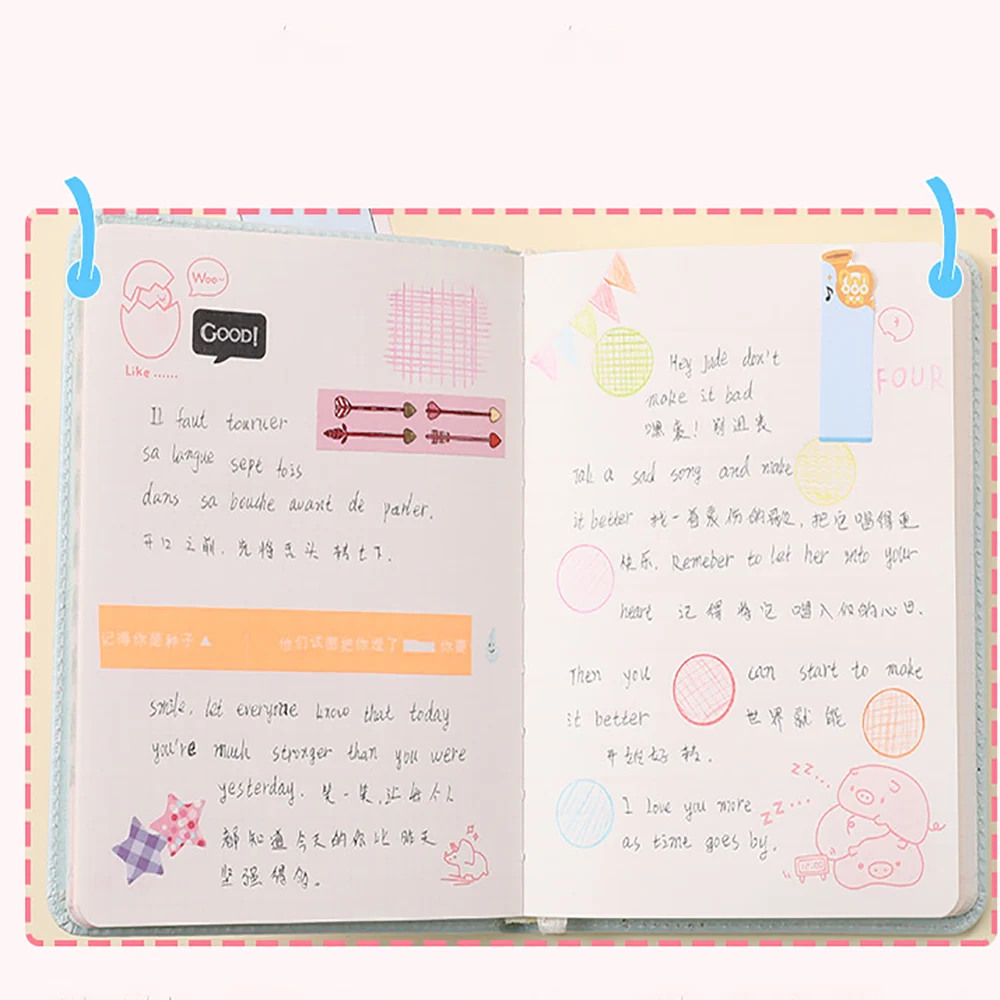 Woo~
GOOD!
Like ......
Il faut tourner
sa langue sept fois
dans sa bouche avant de parler.
开口之前，先将舌头转七下.
记得你是种子▲ 他们试图把你埋了 你要
smile, let everyone know that today
you're much stronger than you were
yesterday. 笑一笑,让每个人
都知道今天的你比昨天
坚强得多。
FOUR
Hey Jude don't
make it bad
嘿 ! 别沮丧
Tak a sad song and make
it better 找一首哀伤的歌,把它唱得更
快乐. Remeber to let her into your
heart 记得将它唱入你的心田.
Then you can start to make
it better 世界就能
开始好转.
I love you more
as time goes by.
zz...
zz...